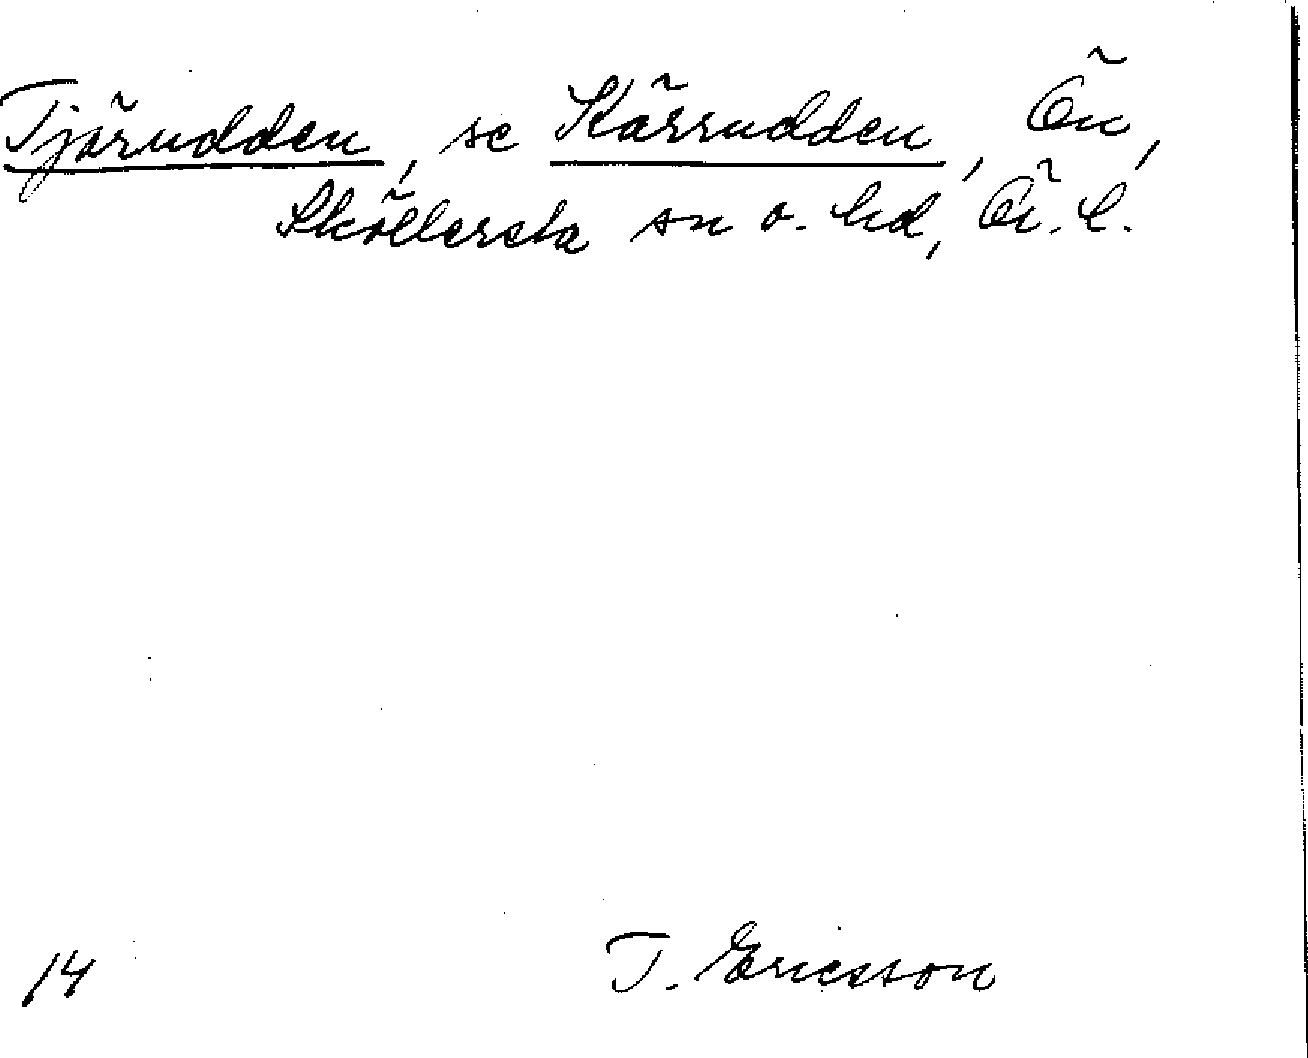 Tjärudden, se Kärrudden, Ön,
Sköllersta sn o. hd, Ö. l.
14 T. Ericsson